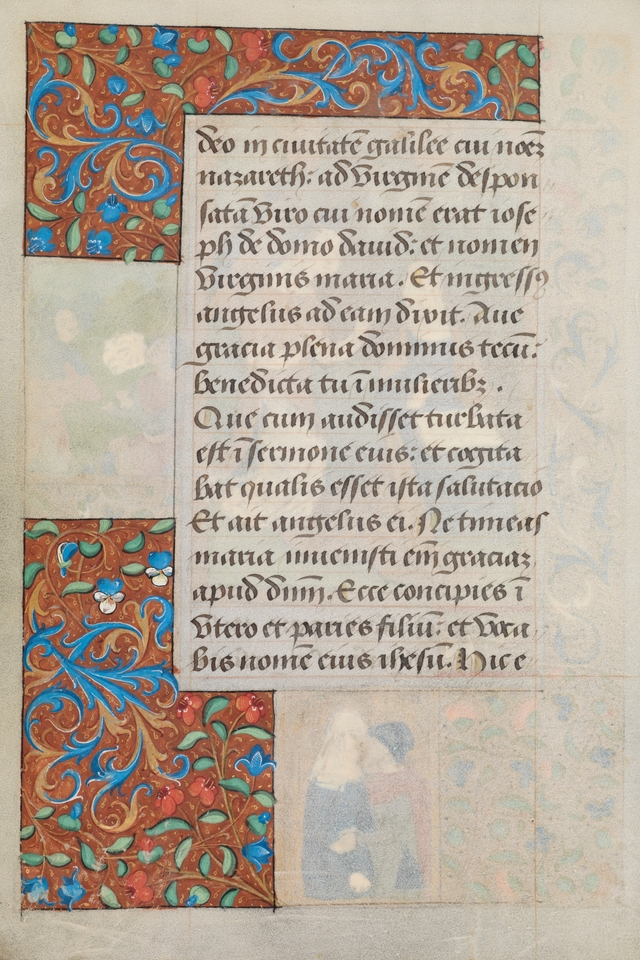 deo in ciuitatē galilee cui noēz
nazareth: ad virginē despon
satā viro cui nomē erat iose
ph de domo dauid: et nomen
virginis maria. Et ingressꝰ
angelus ad eam dixit. Aue
gracia plena dominus tecū:
benedicta tu ī mulieribꝫ.
Que cum audisset turbata
est ī sermone eius: et cogita
bat qualis esset ista salutacio
Et ait angelus ei. Ne timeas
maria inuenisti em̄ graciaꝫ
apud dn̄m. Ecce concipies ī
vtero et paries filiū: et voca
bis nomē eius ihesū. Hic e